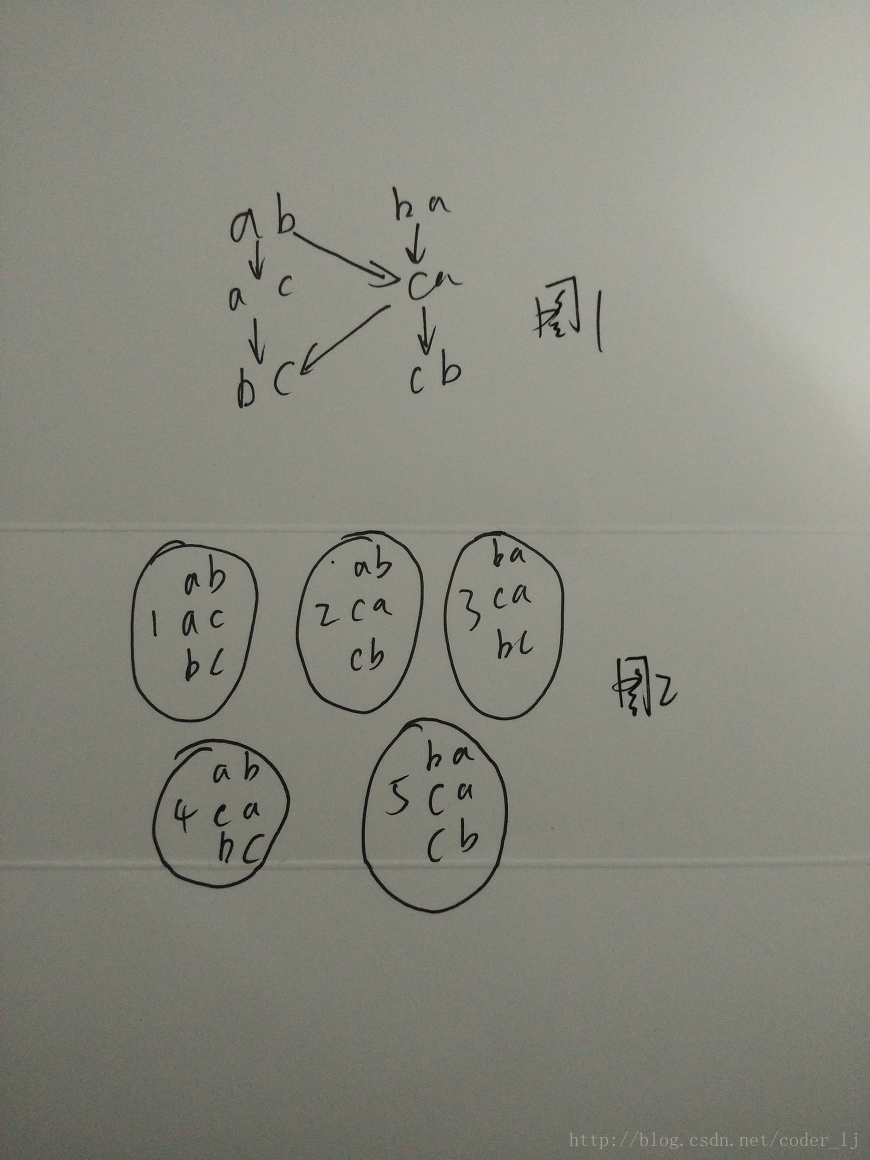 ab ba
ac ca 图1
bc cb
ab
1 ac
bc
ab
2 ca
cb
ba
3 ca
bc
图2
ab
4 ca
bc
ba
5 ca
cb
http://blog.csdn.net/coder_lj